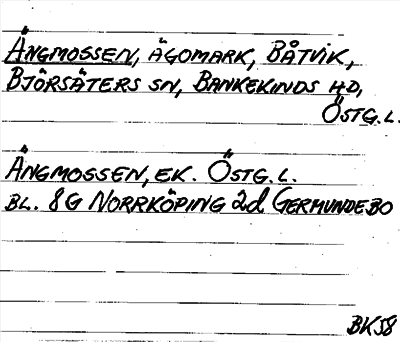 ÄNGMOSSEN, ÄGOMARK, BÅTVIK,
BJÖRSÄTERS SN, BANKEKINDS HD,
ÖSTG.L.
ÄNGMOSSEN, EK. ÖSTG.L.
BL. 8G NORRKÖPING 2d GERMUNDEBO
BK58